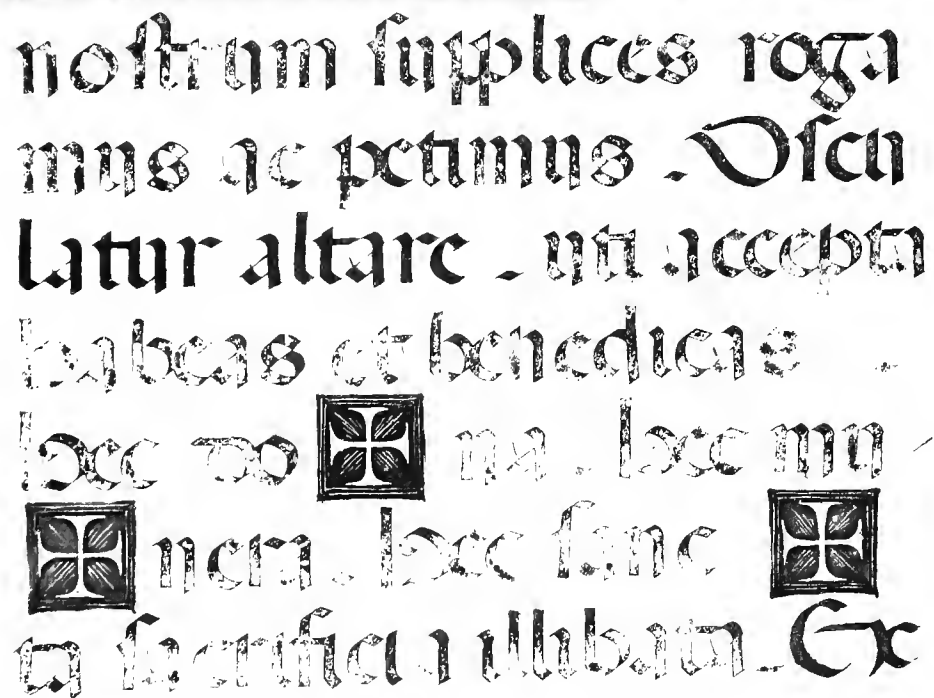 noſtrum ſupplices roga
mus ac petimus . Oſcu
latur altare . uti accepta
habeas et benedicas
hec do ✠ na . hec mu
✠ nera . hec ſanc ✠
ta ſacrificia illibata . Ex